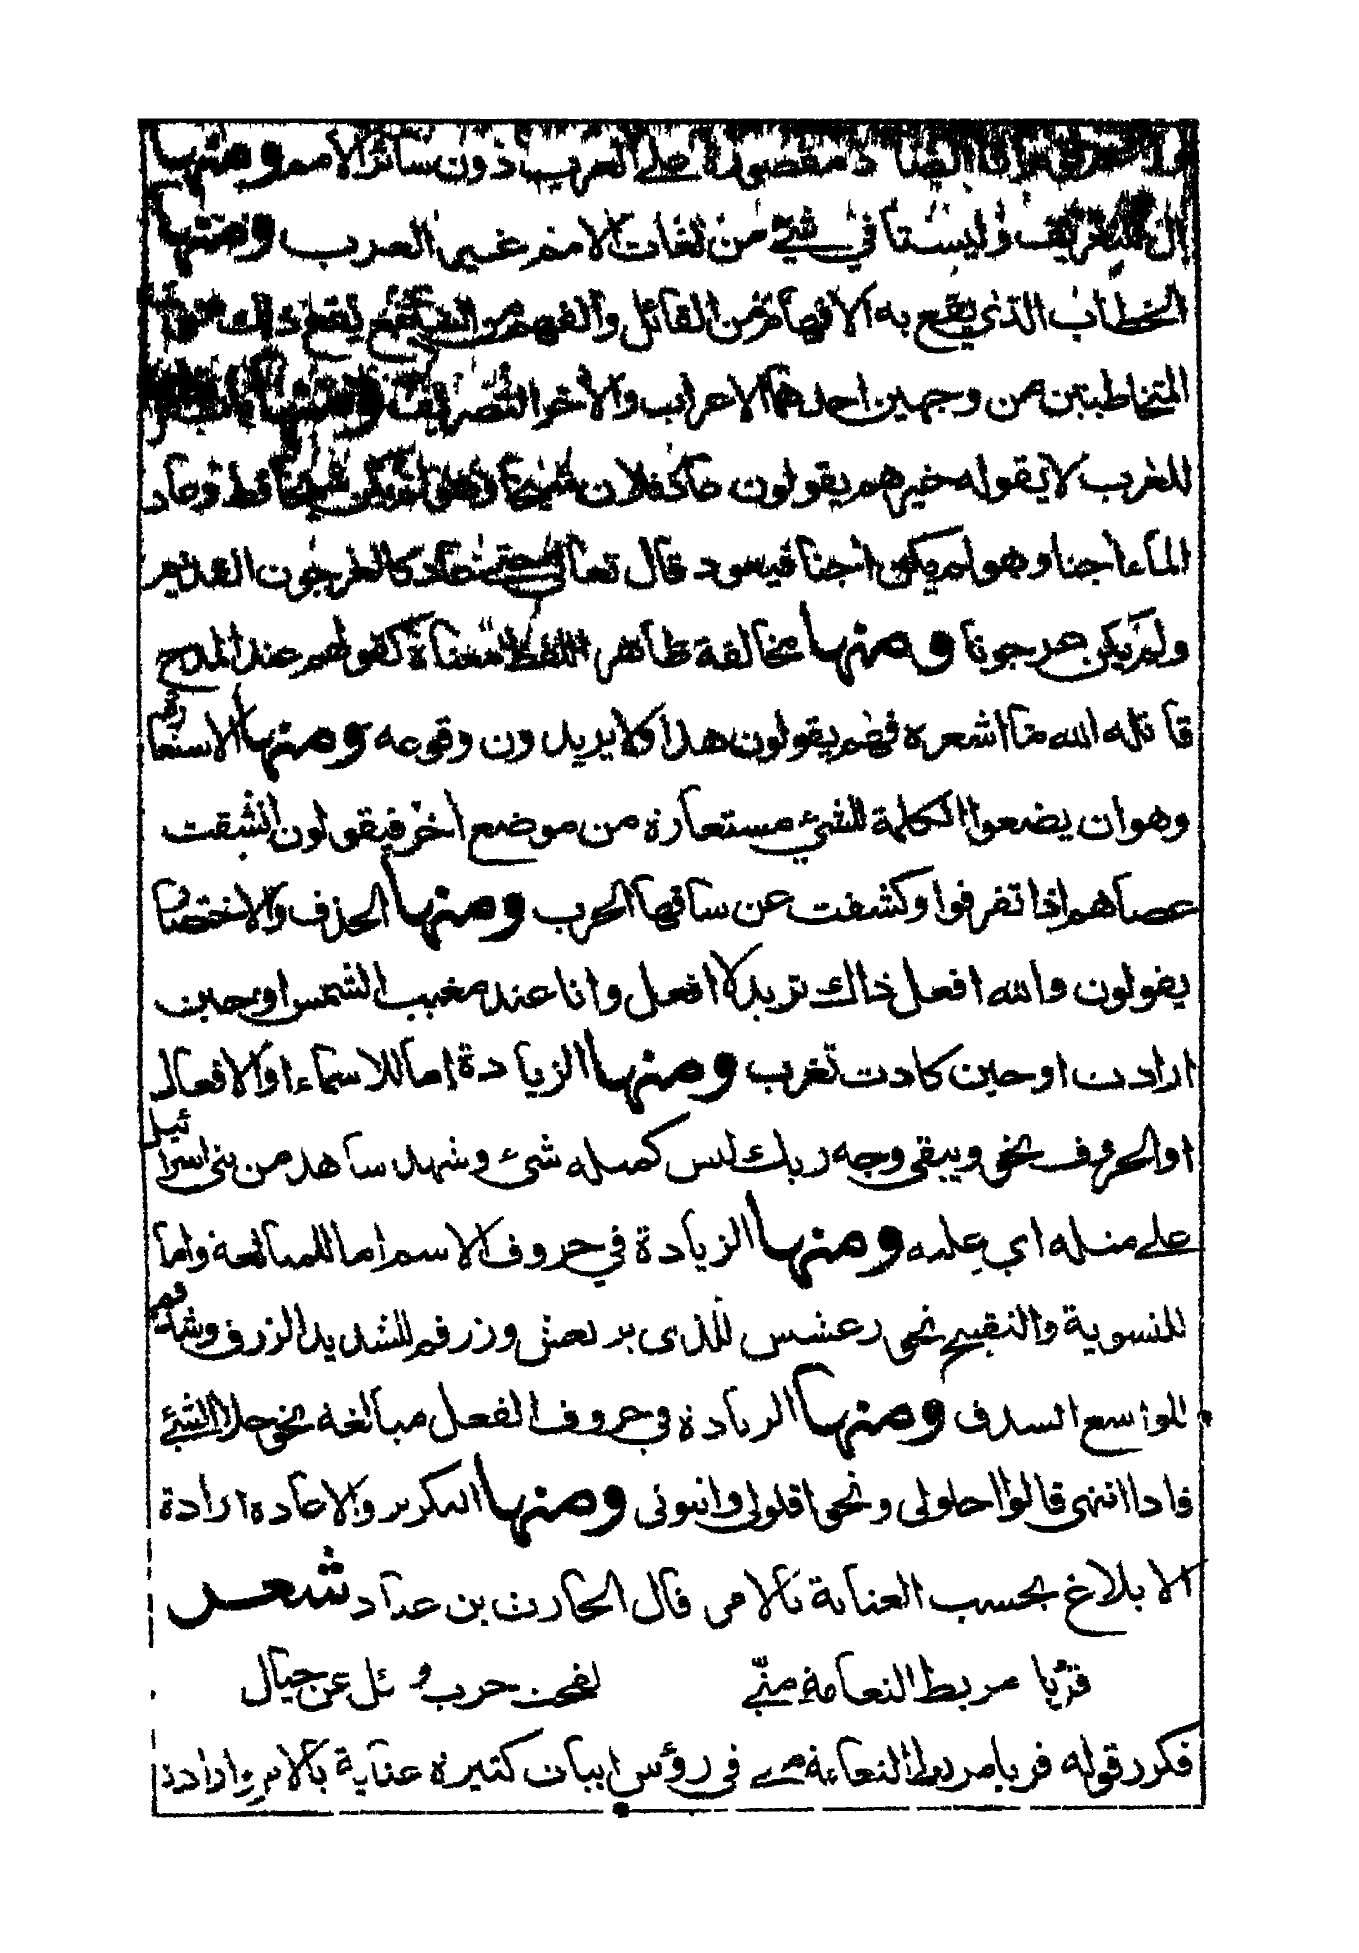 الضاد مقصورة على العرب دون سائر الامم ومنها
ال للتعريف وليستا في شئ من لغات الامم غير العرب ومنها
الخطاب الذي يقع به الافهام من القائل والفهم من السامع يقع ذلك
المتخاطبين من وجهين احدهما الاعراب والآخر التصريف ومنها
للعرب لا يقوله غيرهم يقولون عاد فلان شيخا وهو لم يكن شيخا قط وعاد
الماء آجنا وهو لم يكن آجنا فيسود قال تعالى حتى عاد كالعرجون القديم
ولم يكن عرجونا ومنها مخالفة ظاهر اللفظ معناه كقولهم عند المدح
قاتله الله ما اشعره فهم يقولون هذا ولا يريدون وقوعه ومنها الاستعارة
وهو ان يضعوا الكلمة للشئ مستعارة من موضع اخر فيقولون انشقت
عصاهم اذا تفرقوا وكشفت عن ساقها الحرب ومنها الحذف والاختصار
يقولون والله افعل ذاك تريد لا افعل وانا عند مغيب الشمس او حين
ارادت او حين كادت تغرب ومنها الزيادة إما للاسماء او الافعال
او الحروف نحو ويبقى وجه ربك ليس كمثله شئ وشهد شاهد من بني اسرائيل
على مثله اي عليه ومنها الزيادة في حروف الاسم اما للمبالغة واما
للتسوية والتقبيح نحو رعشس للذى يرتعش وزرقم للشديد الزرق وشدقم
للواسع الشدق ومنها الزيادة في حروف الفعل مبالغة نحو حلا الشئ
فاذا انتهى قالوا احلولى ونحو اقلولى واثنونى ومنها التكرير والاعادة ارادة
الابلاغ بحسب العناية بالامر قال الحارث بن عباد شعر
قربا مربط النعامة منى لقحت حرب وائل عن حيال
فكرر قوله قربا مربط النعامة منى في رؤس ابيات كثيرة عناية بالامر وارادة